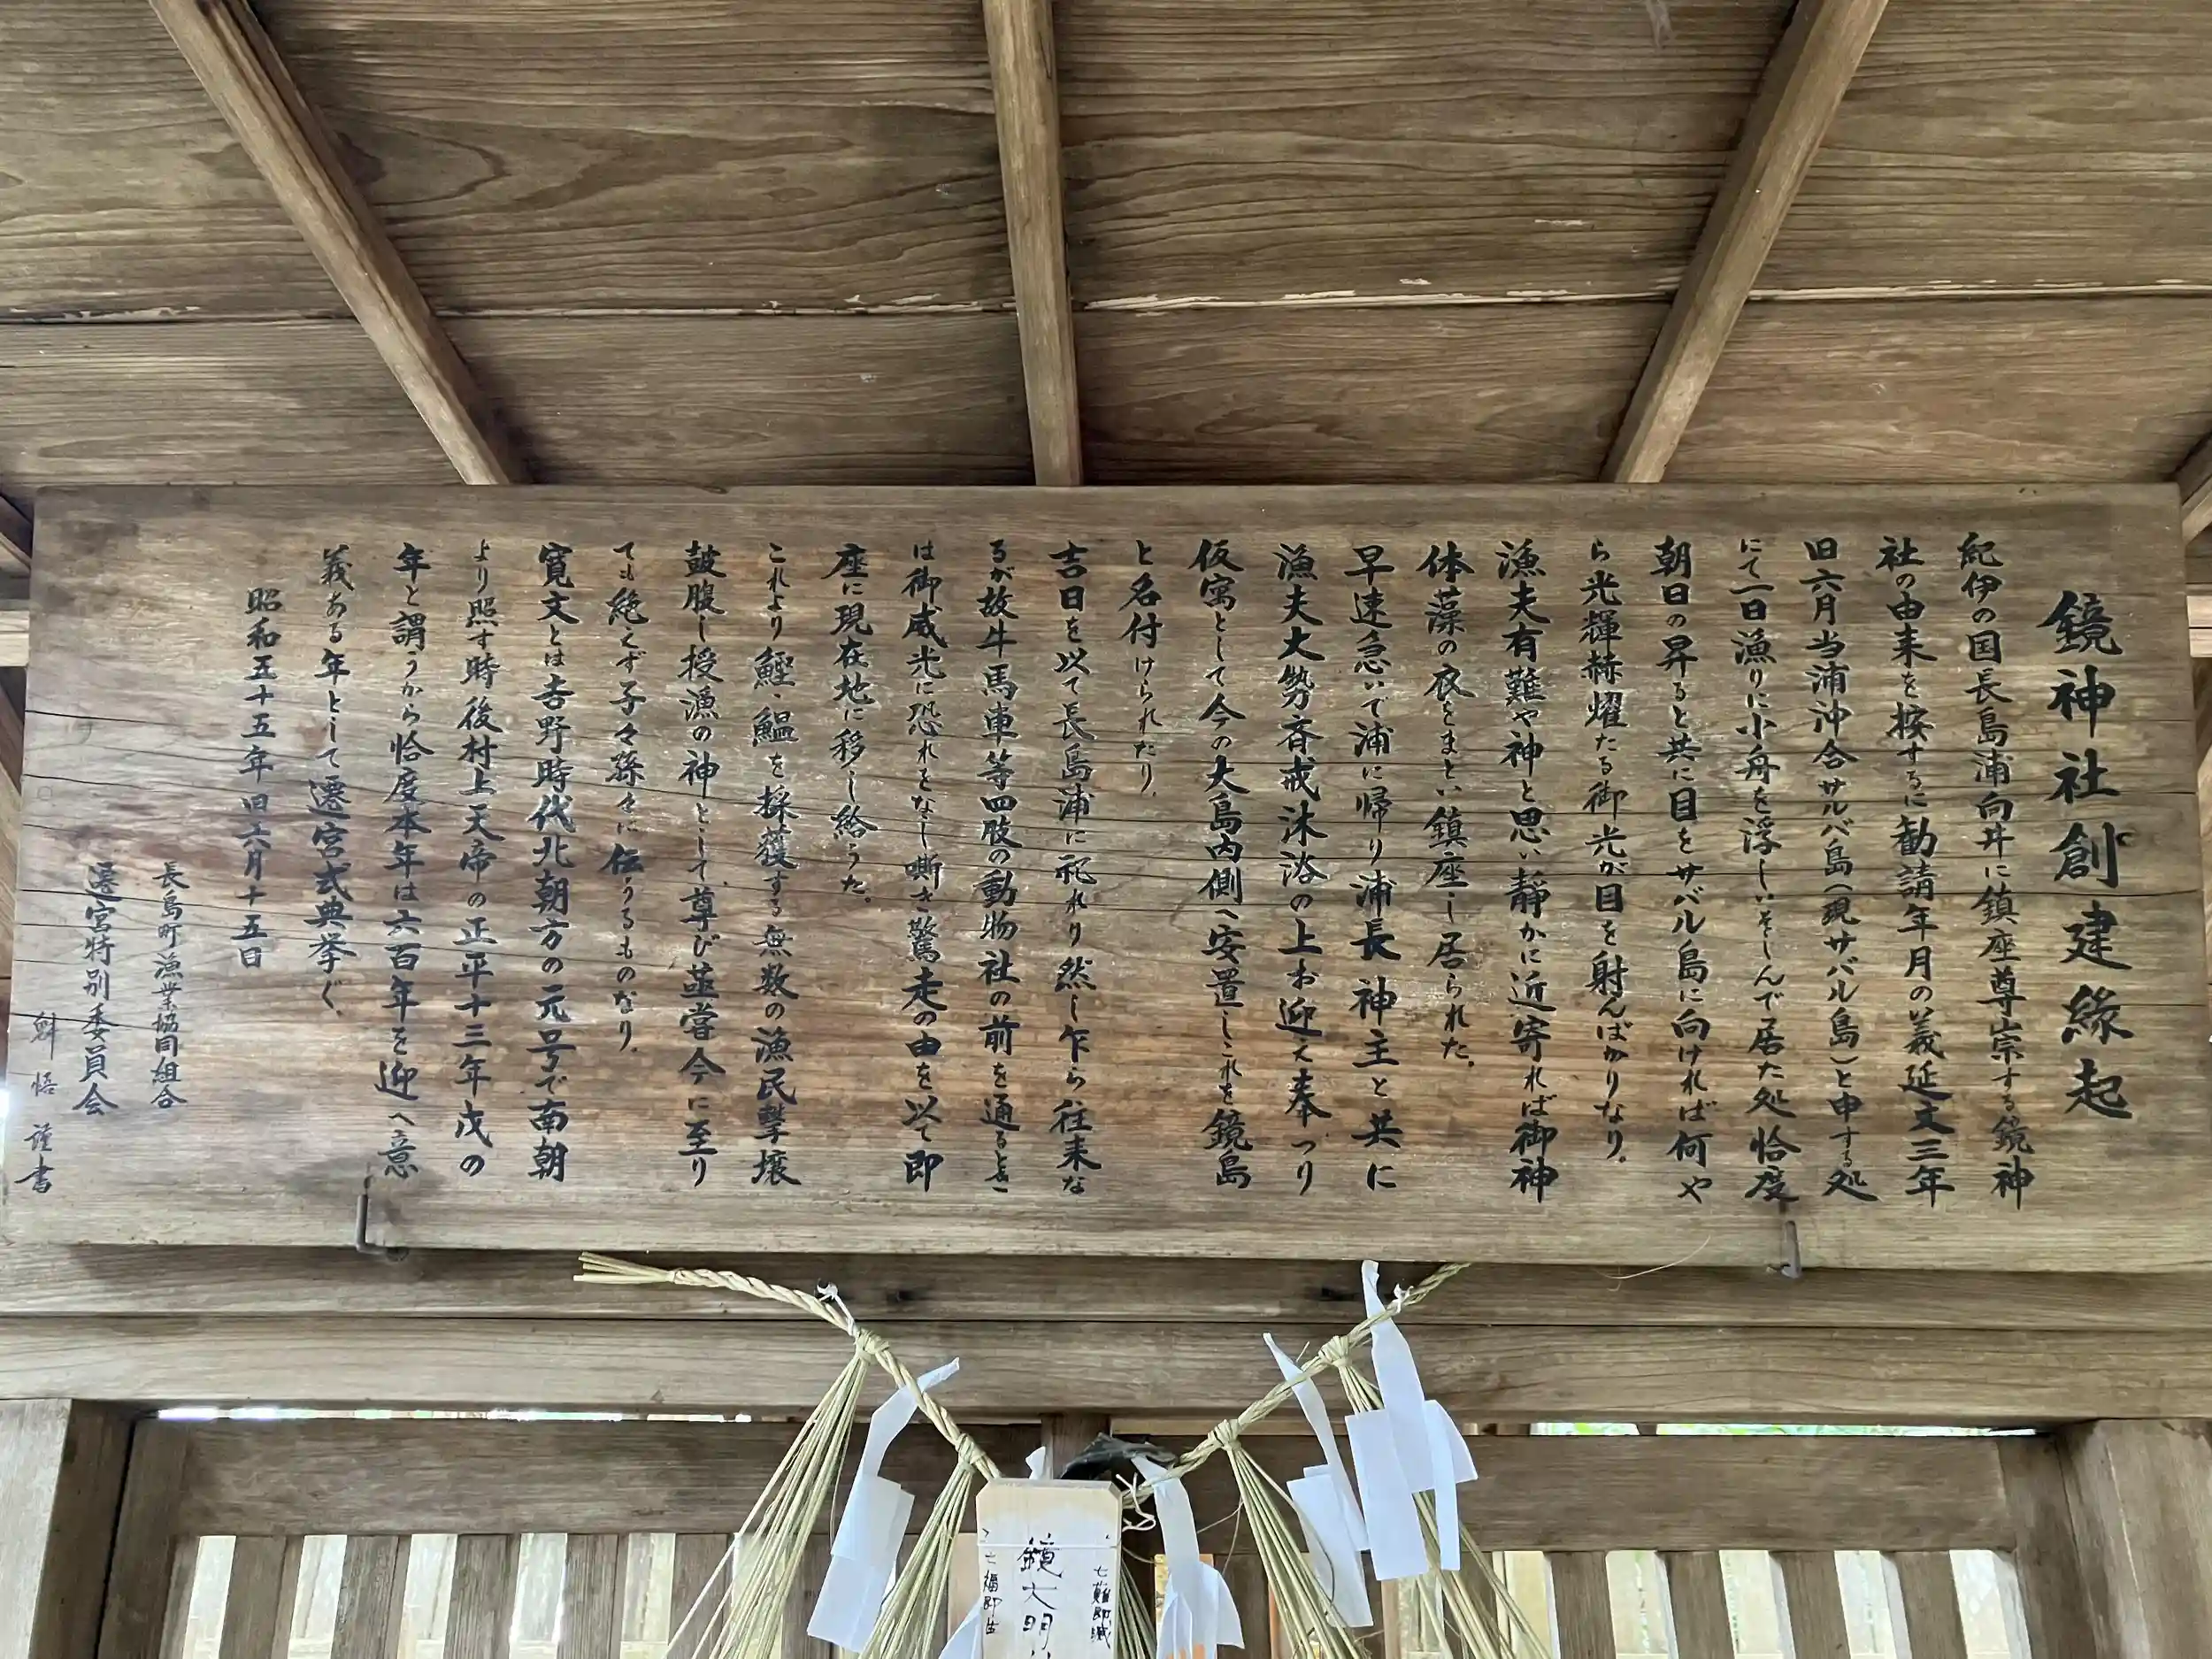 鏡神社創建縁起
紀伊の国長島浦向井に鎮座尊崇する鏡神
社の由来を按するに勧請年月の義延文三年
旧六月当浦沖合サルバ島(現サバル島)と申する処
にて一日漁りに小舟を浮しいそしんで居た処恰度
朝日の昇ると共に目をサバル島に向ければ何や
ら光輝赫燿たる御光が目を射んばかりなり。
漁夫有難や神と思い静かに近寄れば御神
体藻の衣をまとい鎮座し居られた。
早速急いで浦に帰り浦長神主と共に
漁夫大勢斉戒沐浴の上お迎え奉つり
仮寓として今の大島内側へ安置しこれを鏡島
と名付けられたり。
吉日を以て長島浦に祀れり然し乍ら往来な
るが故牛馬車等四肢の動物社の前を通るとき
は御威光に恐れをなし嘶き驚走の由を以て即
座に現在地に移し給うた。
これより鰹、鰮を採獲する無数の漁民撃壌
鼓腹し授漁の神として尊び益當今に至り
ても絶くず子々孫々に伝うるものなり。
寛文とは吉野時代北朝方の元号で南朝
より照す時後村上天帝の正平十三年戊の
年と謂うから恰度本年は六百年を迎へ意
義ある年として遷宮式典挙ぐ、
昭和五十五年旧六月十五日
長島町漁業協同組合
遷宮特別委員会
魁悟 謹書
七難即滅
鏡大明
七福即生